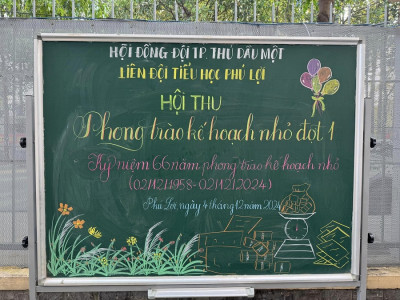 HỘI ĐỒNG ĐỘI TP. THỦ DẦU MỘT
LIÊN ĐỘI TIỂU HỌC PHÚ LỢI
HỘI THU
Phong trào kế hoạch nhỏ đợt 1
Kỷ niệm 66 năm phong trào kế hoạch nhỏ
(02/12/1958-02/12/2024)
Phú Lợi, ngày 4 tháng 12 năm 2024